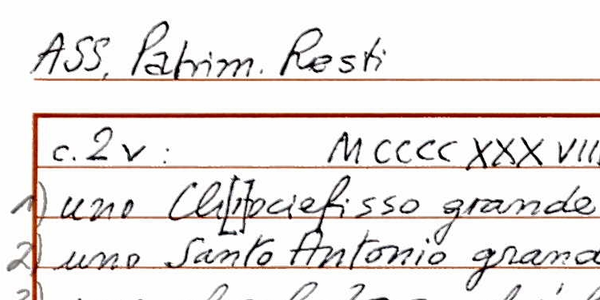 ASS, Patrim. Resti
c. 2 v : MCCCC XXX VIII
1) uno grande
2) uno Santo Antonio grand